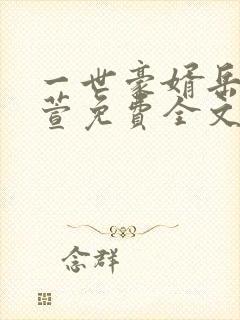 一世豪婿岳
萱免費全文
念群